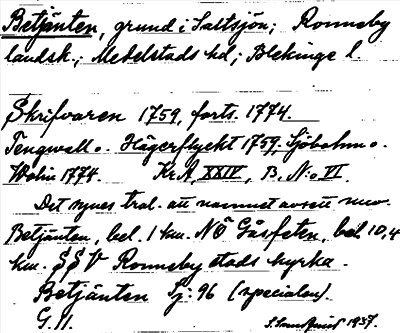 Betjänten, grund i Saltsjön; Ronneby
landsk.; Medelstads hd; Blekinge l.
Skrifvaren 1759, forts. 1774.
Tengwall o. Hägerflycht 1759. Sjöbohm o.
Wolin 1774. KrA, XXIV, B, N:o VI.
Det synes tral. att namnet avsett nuv.
Betjänten, bel. 1 km. NÖ Gåsfeten, bel. 10,4
km. SSV Ronneby stads kyrka.
Betjänten Sj: 96 (specialen).
G. H. 1937.